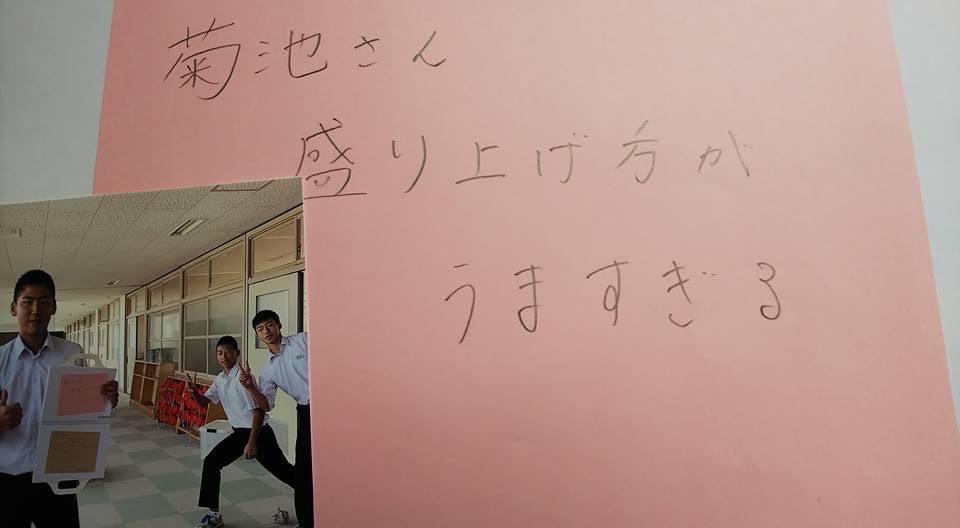 菊池さん
盛り上げ方が
うますぎる